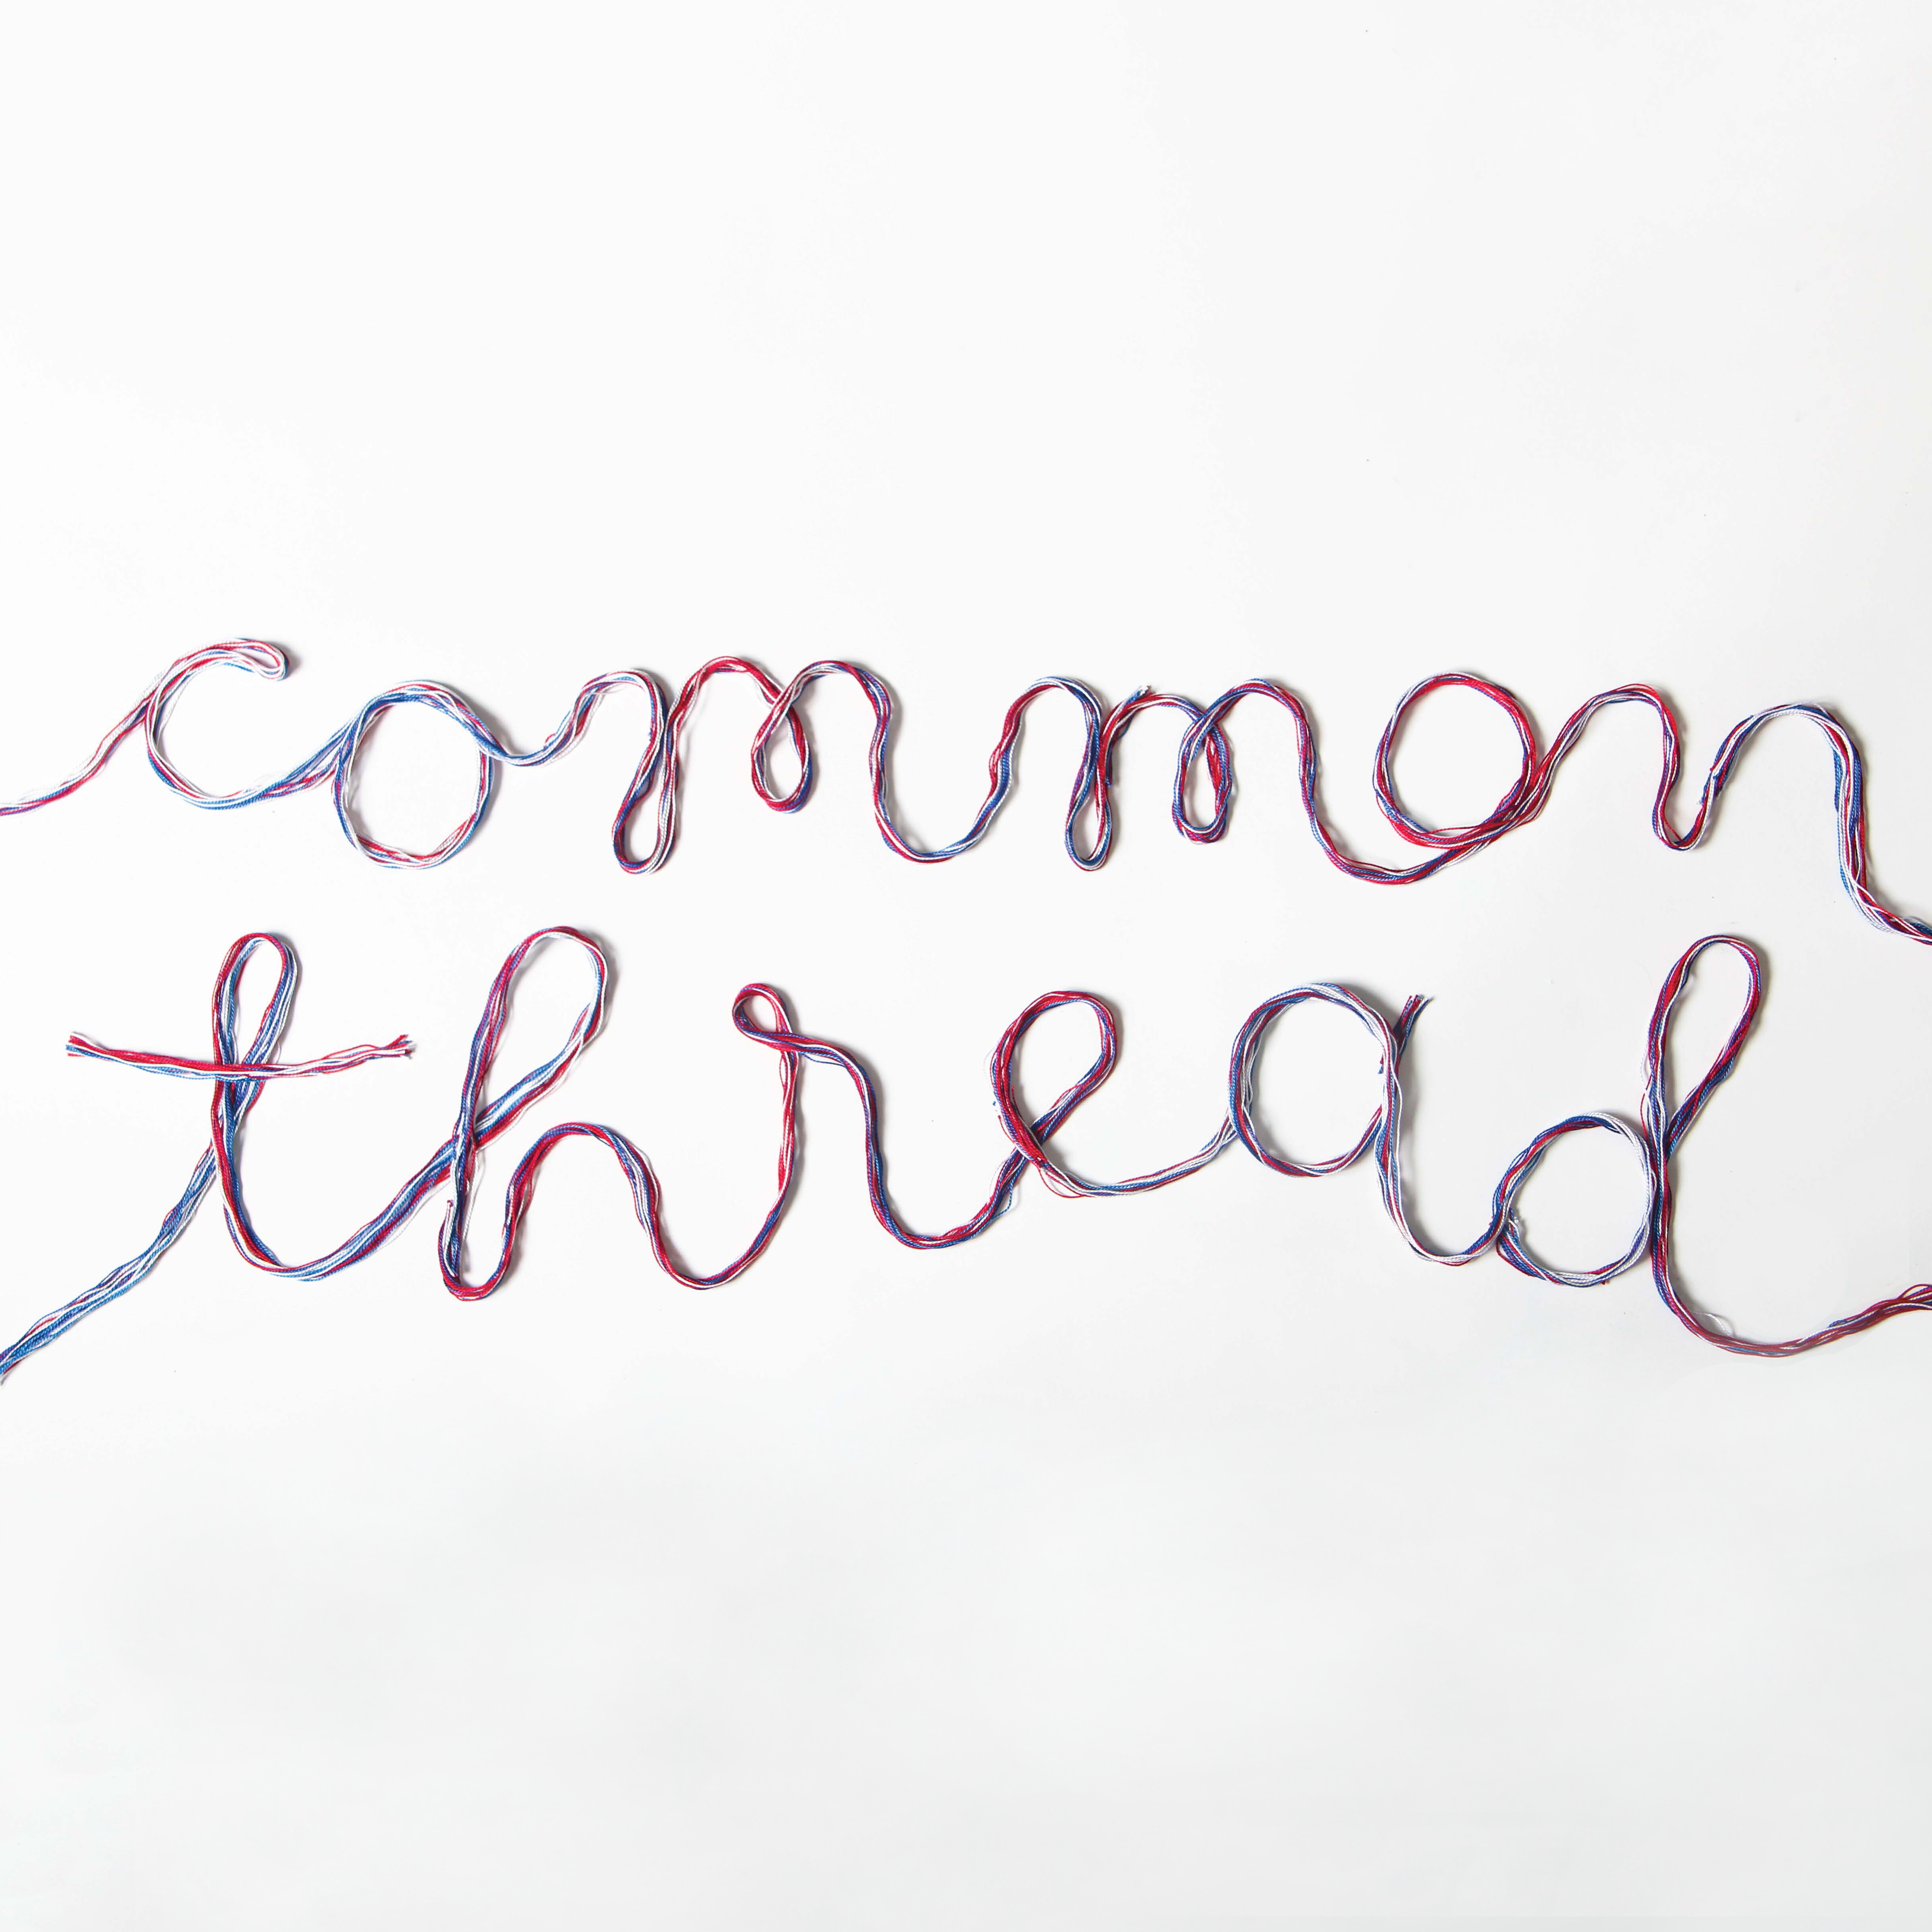 common
thread